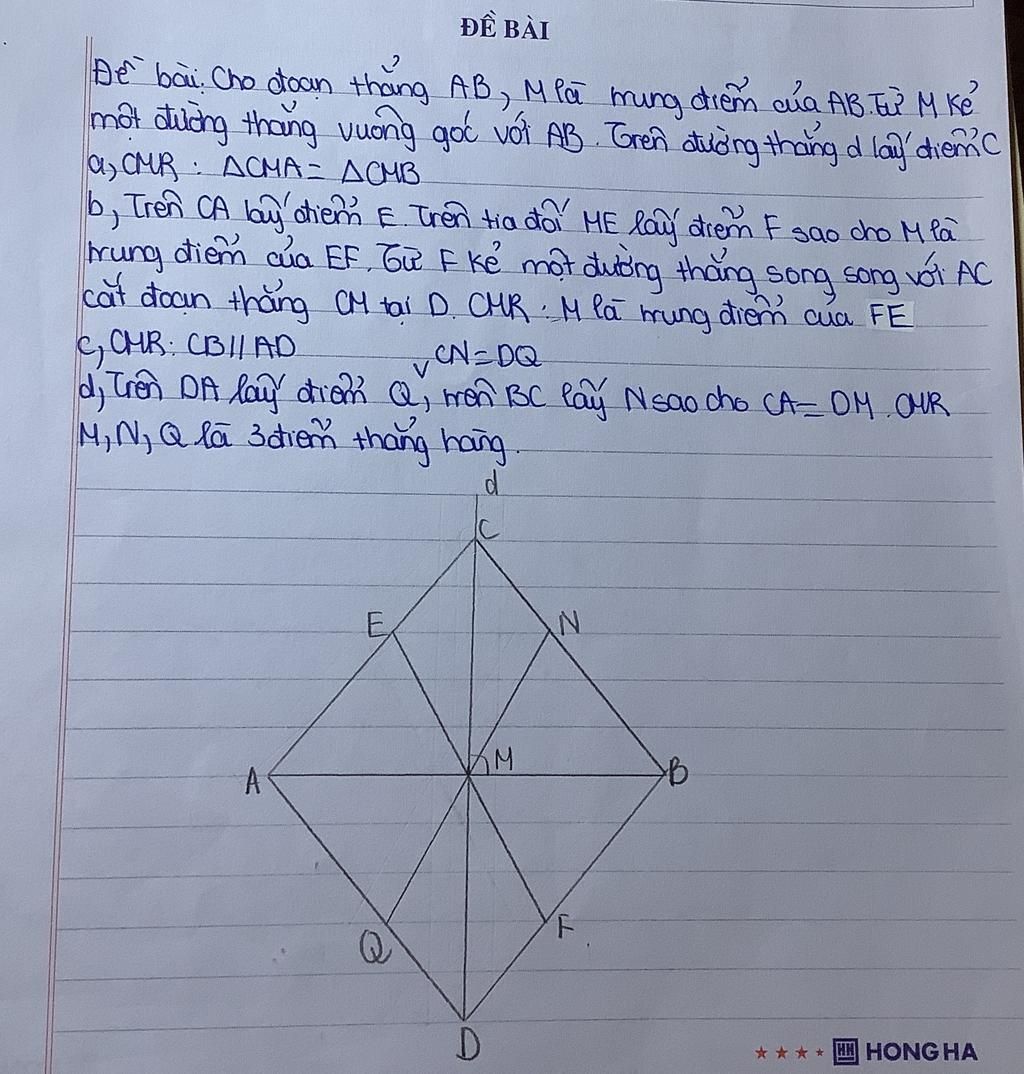 ĐỀ BÀI
Đề bài: Cho đoạn thẳng AB, M là trung điểm của AB. Từ M kẻ
một đường thẳng vuông góc với AB. Trên đường thẳng d lấy điểm C
a, CMR : ΔCMA = ΔCMB
b, Trên CA lấy điểm E. Trên tia đối ME lấy điểm F sao cho M là
trung điểm của EF. Từ F kẻ một đường thẳng song song với AC
cắt đoạn thẳng CM tại D. CMR : M là trung điểm của FE
c, CMR: CB // AD
v CN = DQ
d, Trên DA lấy điểm Q, trên BC lấy N sao cho CA = DM. CMR
M, N, Q là 3 điểm thẳng hàng.
d
C
E
N
A
M
B
Q
F
D
HH HONG HA